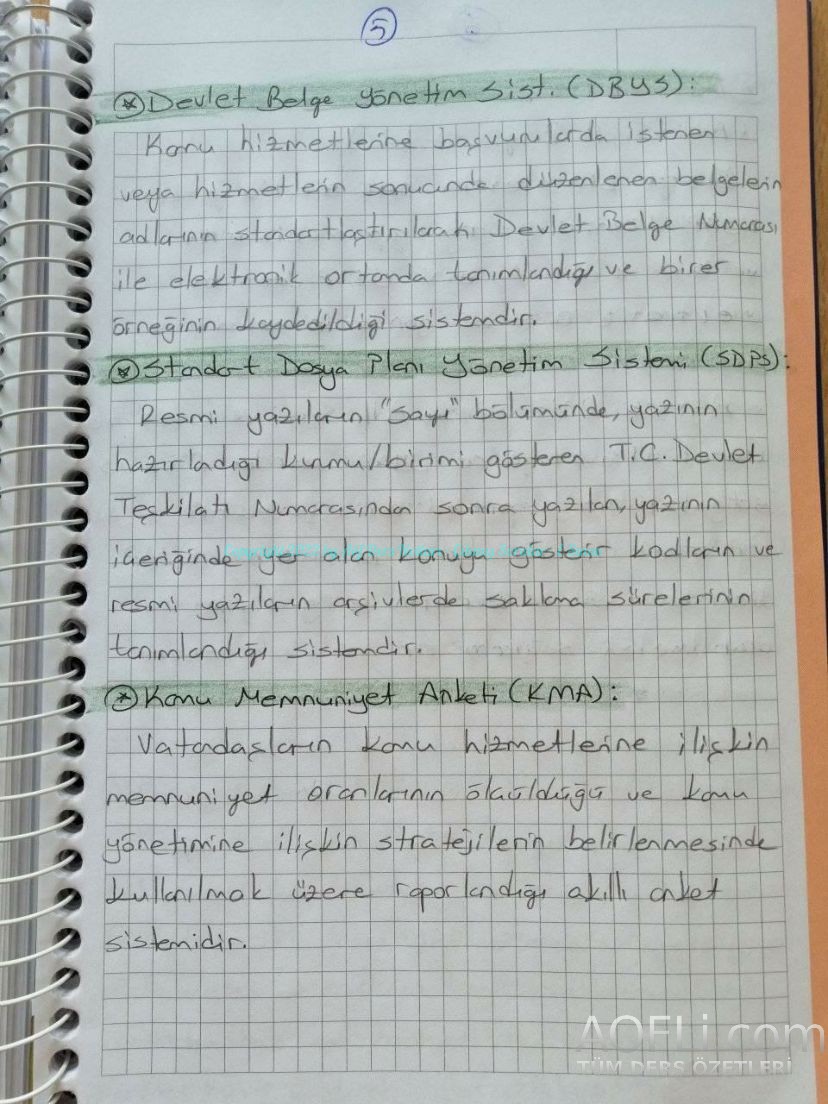 5
* Devlet Belge Yönetim Sist. (DBYS):
Kamu hizmetlerine başvurularda istenen
veya hizmetlerin sonucunda düzenlenen belgelerin
adlarının standartlaştırılarak Devlet Belge Numarası
ile elektronik ortamda tanımlandığı ve birer
örneğinin kaydedildiği sistemdir.
* Standart Dosya Planı Yönetim Sistemi (SDPS):
Resmi yazıların "Sayı" bölümünde, yazının
hazırladığı kurumu/birimi gösteren T.C. Devlet
Teşkilatı Numarasından sonra yazılan, yazının
içeriğinde yer alan konuyu gösterir kodların ve
resmi yazıların arşivlerde saklama sürelerinin
tanımlandığı sistemdir.
* Kamu Memnuniyet Anketi (KMA):
Vatandaşların kamu hizmetlerine ilişkin
memnuniyet oranlarının ölçüldüğü ve kamu
yönetimine ilişkin stratejilerin belirlenmesinde
kullanılmak üzere raporlandığı akıllı anket
sistemidir.
AOFLi.com
TÜM DERS ÖZETLERİ